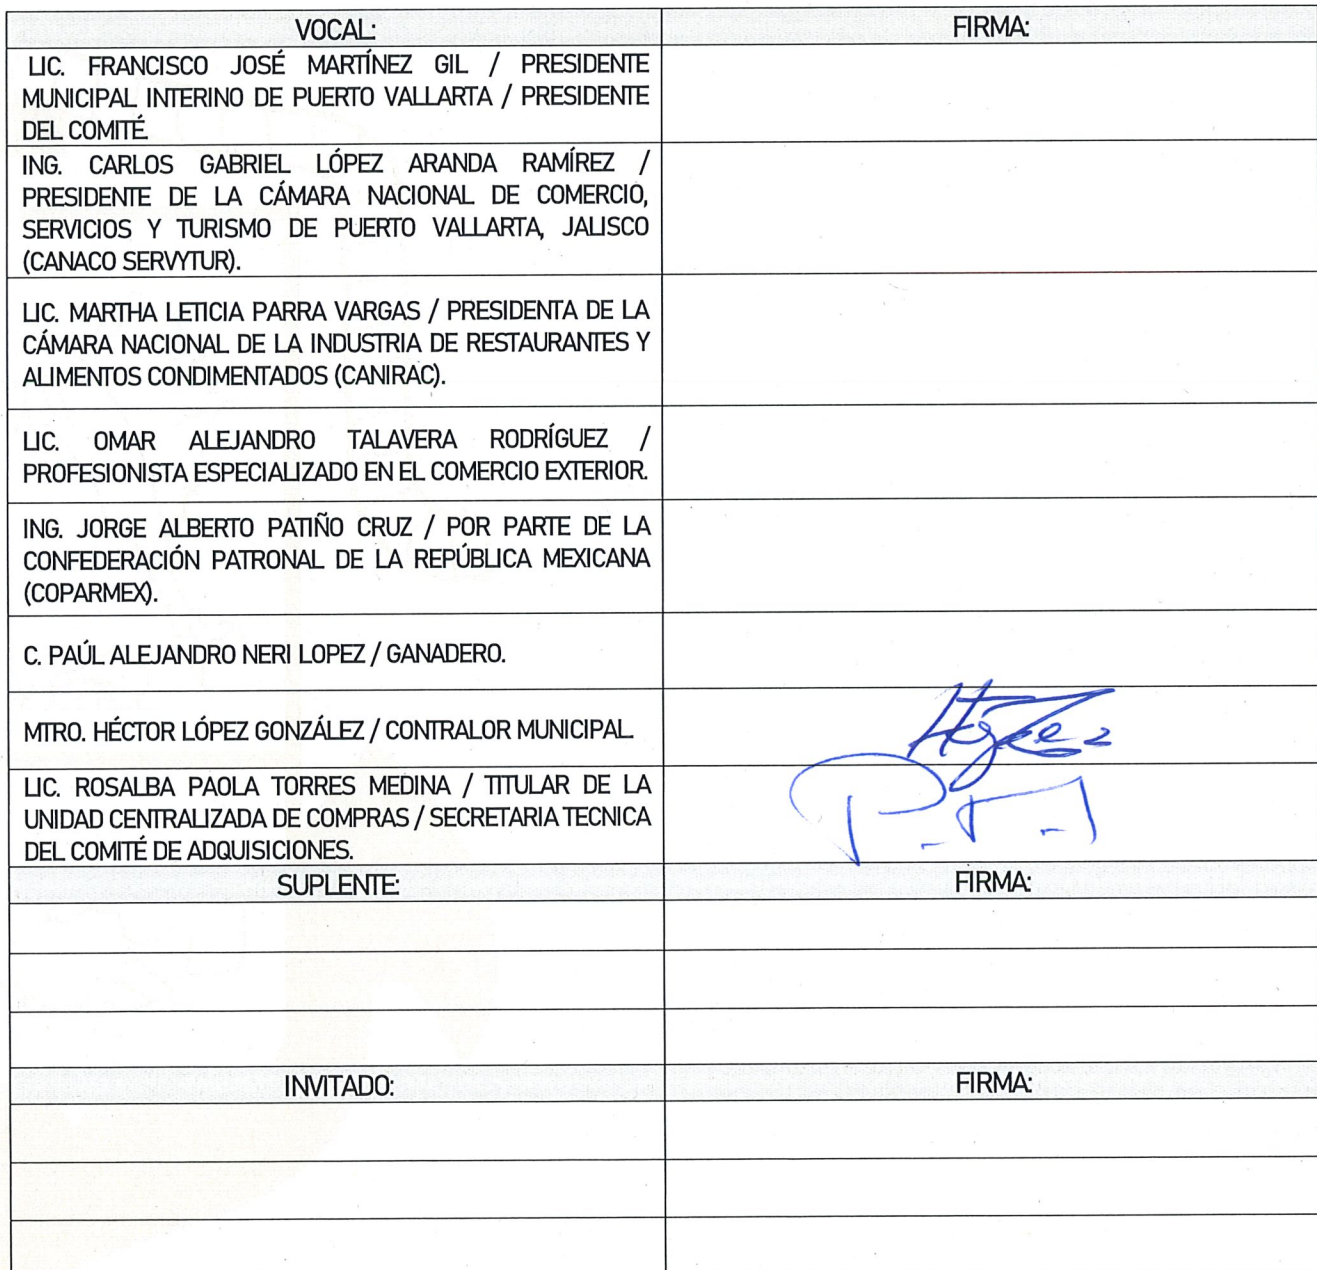 VOCAL:
FIRMA:
LIC. FRANCISCO JOSÉ MARTÍNEZ GIL / PRESIDENTE
MUNICIPAL INTERINO DE PUERTO VALLARTA / PRESIDENTE
DEL COMITÉ.
ING. CARLOS GABRIEL LÓPEZ ARANDA RAMÍREZ /
PRESIDENTE DE LA CÁMARA NACIONAL DE COMERCIO,
SERVICIOS Y TURISMO DE PUERTO VALLARTA, JALISCO
(CANACO SERVYTUR).
LIC. MARTHA LETICIA PARRA VARGAS / PRESIDENTA DE LA
CÁMARA NACIONAL DE LA INDUSTRIA DE RESTAURANTES Y
ALIMENTOS CONDIMENTADOS (CANIRAC).
LIC. OMAR ALEJANDRO TALAVERA RODRÍGUEZ /
PROFESIONISTA ESPECIALIZADO EN EL COMERCIO EXTERIOR.
ING. JORGE ALBERTO PATIÑO CRUZ / POR PARTE DE LA
CONFEDERACIÓN PATRONAL DE LA REPÚBLICA MEXICANA
(COPARMEX).
C. PAÚL ALEJANDRO NERI LOPEZ / GANADERO.
MTRO. HÉCTOR LÓPEZ GONZÁLEZ / CONTRALOR MUNICIPAL.
LIC. ROSALBA PAOLA TORRES MEDINA / TITULAR DE LA
UNIDAD CENTRALIZADA DE COMPRAS / SECRETARIA TECNICA
DEL COMITÉ DE ADQUISICIONES.
SUPLENTE:
FIRMA:
INVITADO:
FIRMA: